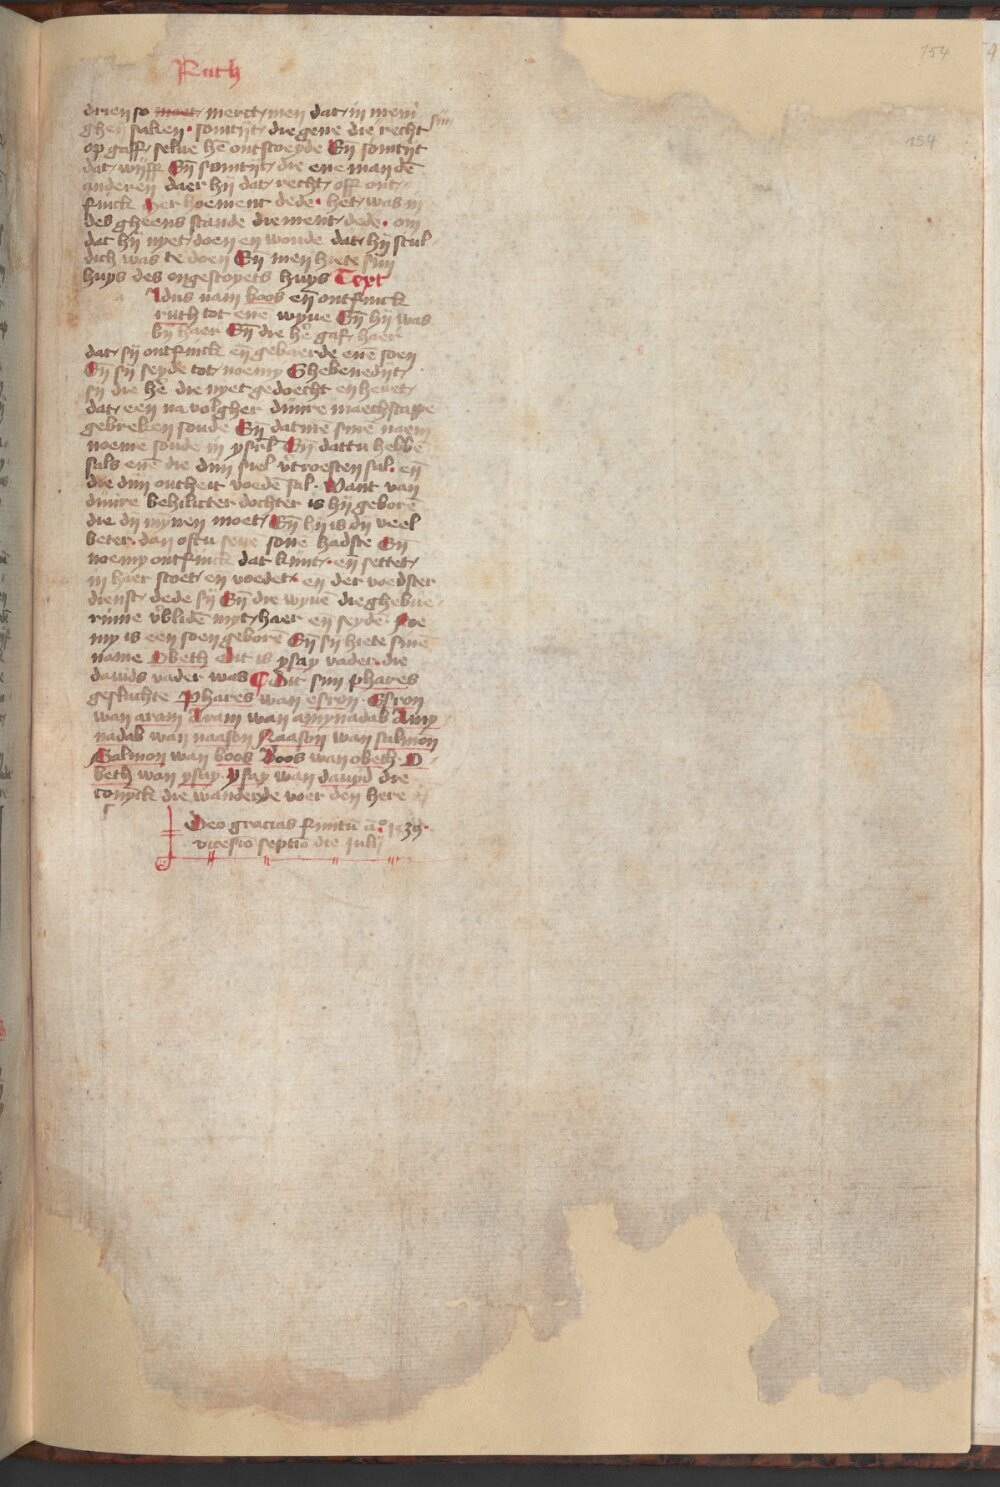 154
Ruth
154
drien so moet merct men dat in meni
ghen saken · somtijt die gene die recht sijn
op gaff selue hē ontscoeyde Eñ somtijt
dat wijff Eñ somtijt die ene man dē
anderen daer hij dat recht off ont
finck Mer hoement dede · het was in
des gheens stande diement dede · om
dat hij nyet doen en woude dat hij scul
dich was te doen Eñ men hiete sijn
huys des ongescoyets huys Text
Aldus nam boos eñ ontfinck
ruth tot enē wijue Eñ hij was
bij haer Eñ die hē gaf haer
dat sij ontfinck eñ gebaerde enē soen
Eñ sij seyde tot noemy Ghebenedijt
sij die hē die nyet gedoecht en heuet
dat een na volgher dijnre maechscappē
gebreken soude Eñ datmē sinē naem
noeme soude in ysrl Eñ dattu hebbē
sals enē die dijn siel v̄troesten sal · eñ
die dijn outheit voedē sal · Want van
dijnre behilicter dochter is hij geborē
die dij mynen moet Eñ hij is dij veel
beter · dan ofstu seue sone hadste Eñ
noemy ontfinck dat kijnt · eñ settet
in haer scoet en voedet · en der voedster
dienst dede sij Eñ die wyuē die ghebue
rinne v̄blidē myt haer en seydē Noe
my is een soen geborē Eñ sij hiete sinē
name Obeth Dit is ysay vader · die
dauids vader was Dit sijn phares
geslachte Phares wan esron · Esron
wan aram Aram wan amynadab Amy
nadab wan naason Naason wan salmon
Salmon wan boos Boos wan obeth · O
beth wan ysay · Ysay wan dauyd die
conyck die wanderde voer den here
Deo gracias finitū a° 1439 ·
vicesīo septīo die Julij